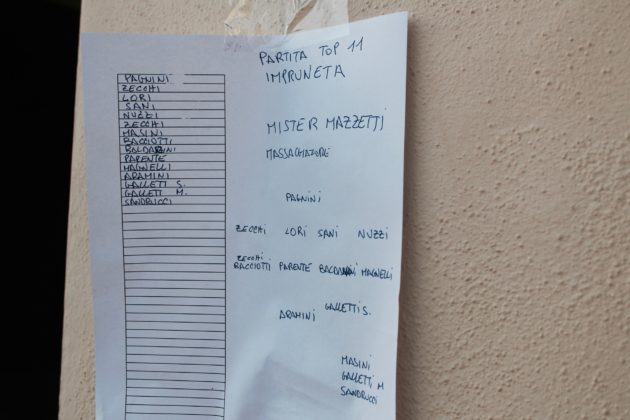 PAGNINI
ZECCHI
LORI
SANI
NUZZI
ZECCHI
MASINI
BACCIOTTI
BALDARINI
PARENTE
MAGNELLI
ARAMINI
GALLETI S.
GALLETI M.
SANDRUCCI
PARTITA TOP 11
IMPRUNETA
MISTER MAZZETTI
MASSAGGIATORE
PAGNINI
ZECCHI LORI SANI NUZZI
ZECCHI
BACCIOTTI PARENTE MAGNELLI
GALLETTI S.
ARAMINI
MASINI
GALLETI M
SANDRUCCI